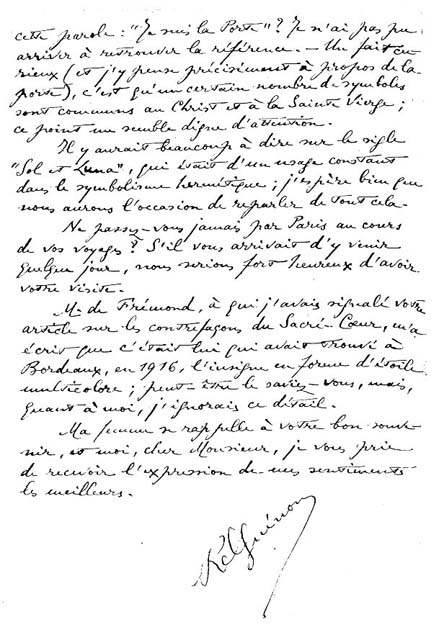 cette parole : "Je suis la Porte" ? Je n'ai pas pu
arriver à retrouver la référence. — Un fait cu-
rieux (et j'y pense précisément à propos de la
porte), c'est qu'un certain nombre de symboles
sont communs au Christ et à la Sainte Vierge ;
ce point me semble digne d'attention.
Il y aurait beaucoup à dire sur le sigle
"Sol et Luna", qui était d'un usage constant
dans le symbolisme hermétique ; j'espère bien que
nous aurons l'occasion de reparler de tout cela.
Ne passez-vous jamais par Paris au cours
de vos voyages ? S'il vous arrivait d'y venir
quelque jour, nous serions fort heureux d'avoir
votre visite.
M. de Frémond, à qui j'avais signalé votre
article sur les contrefaçons du Sacré-Cœur, m'a
écrit que c'était lui qui avait trouvé à
Bordeaux, en 1916, l'insigne en forme d'étoile
multicolore ; peut-être le saviez-vous, mais,
quant à moi, j'ignorais ce détail.
Ma femme se rappelle à votre bon souve-
nir, et moi, cher Monsieur, je vous prie
de recevoir l'expression de mes sentiments
les meilleurs.
René Guénon